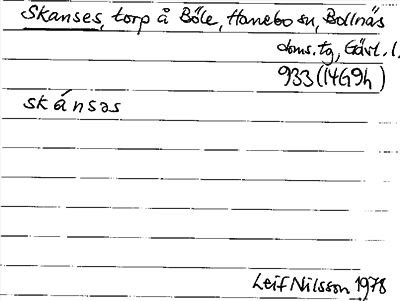 Skanses, torp å Böle, Hanebo sn, Bollnäs
doms.tg, Gävl. l.
933 (14G9h)
skánsəs
Leif Nilsson 1978